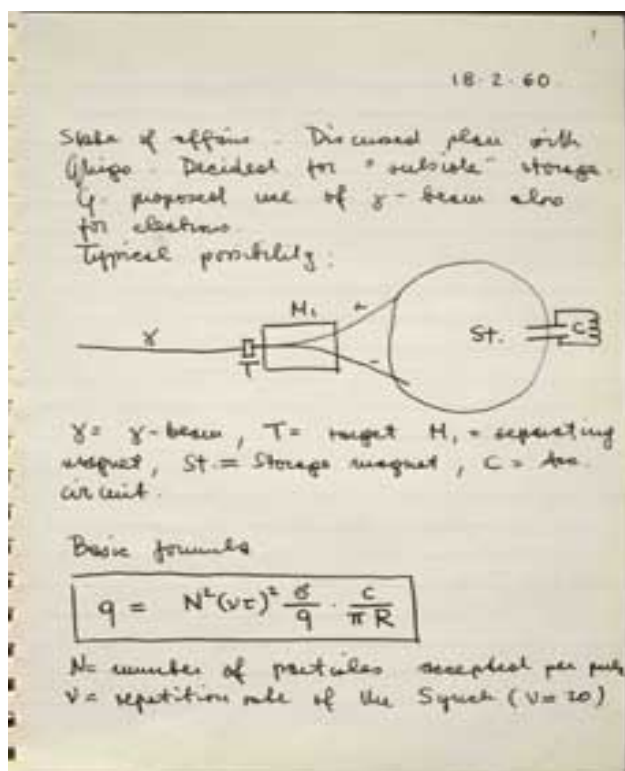 18·2·60
State of affairs. Discussed plan with
Ghigo. Decided for "outside" storage.
G. proposed use of γ-beam also
for electrons.
Typical possibility:
γ T M₁ + - St. C
γ = γ-beam, T = target M₁ = separating
magnet, St. = Storage magnet, C = Acc.
circuit.
Basic formula
q = N²(ντ)² σ/q · c/πR
N = number of particles accepted per puls
ν = repetition rate of the Synch (ν = 20)